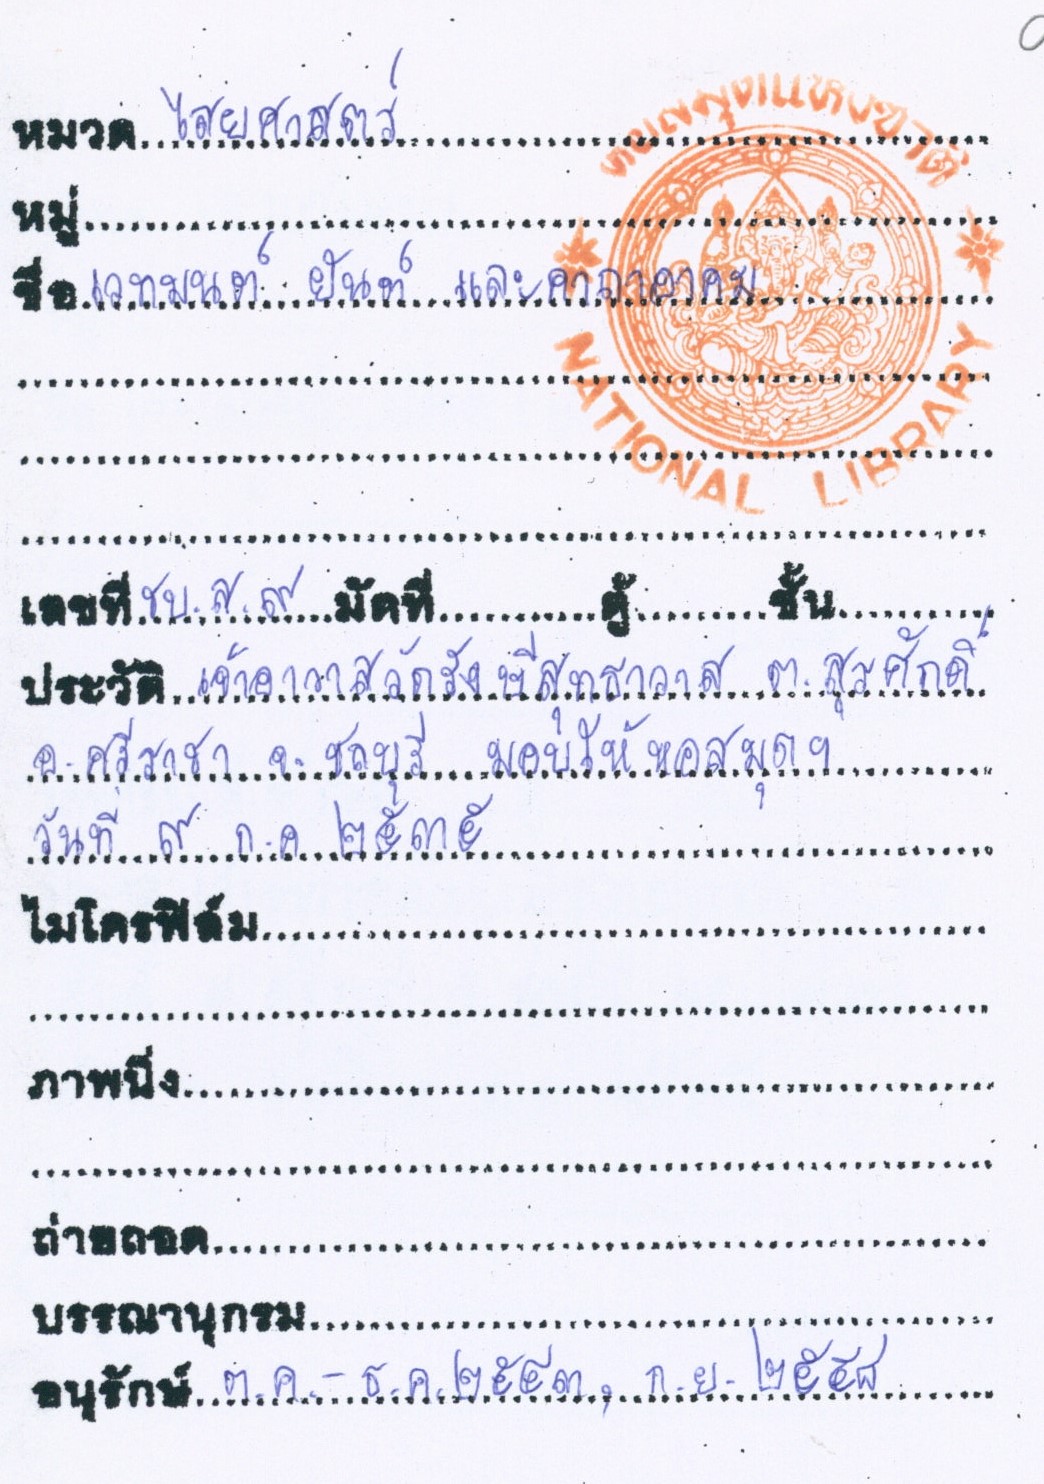 หอสมุดแห่งชาติ
NATIONAL LIBRARY
หมวด ไสยศาสตร์
หมู่
ชื่อ เวทมนต์ ยันต์ และคาถาอาคม
เลขที่ ชบ.ส.๙ มัดที่ ตู้ ชั้น
ประวัติ เจ้าอาวาสวัดรังษีสุทธาวาส ต.สุรศักดิ์
อ.ศรีราชา จ.ชลบุรี มอบให้หอสมุดฯ
วันที่ ๙ ก.ค ๒๕๓๕
ไมโครฟิล์ม
ภาพนิ่ง
ถ่ายถอด
บรรณานุกรม
อนุรักษ์ ต.ค.-ธ.ค.๒๕๔๓, ก.ย.๒๕๕๘